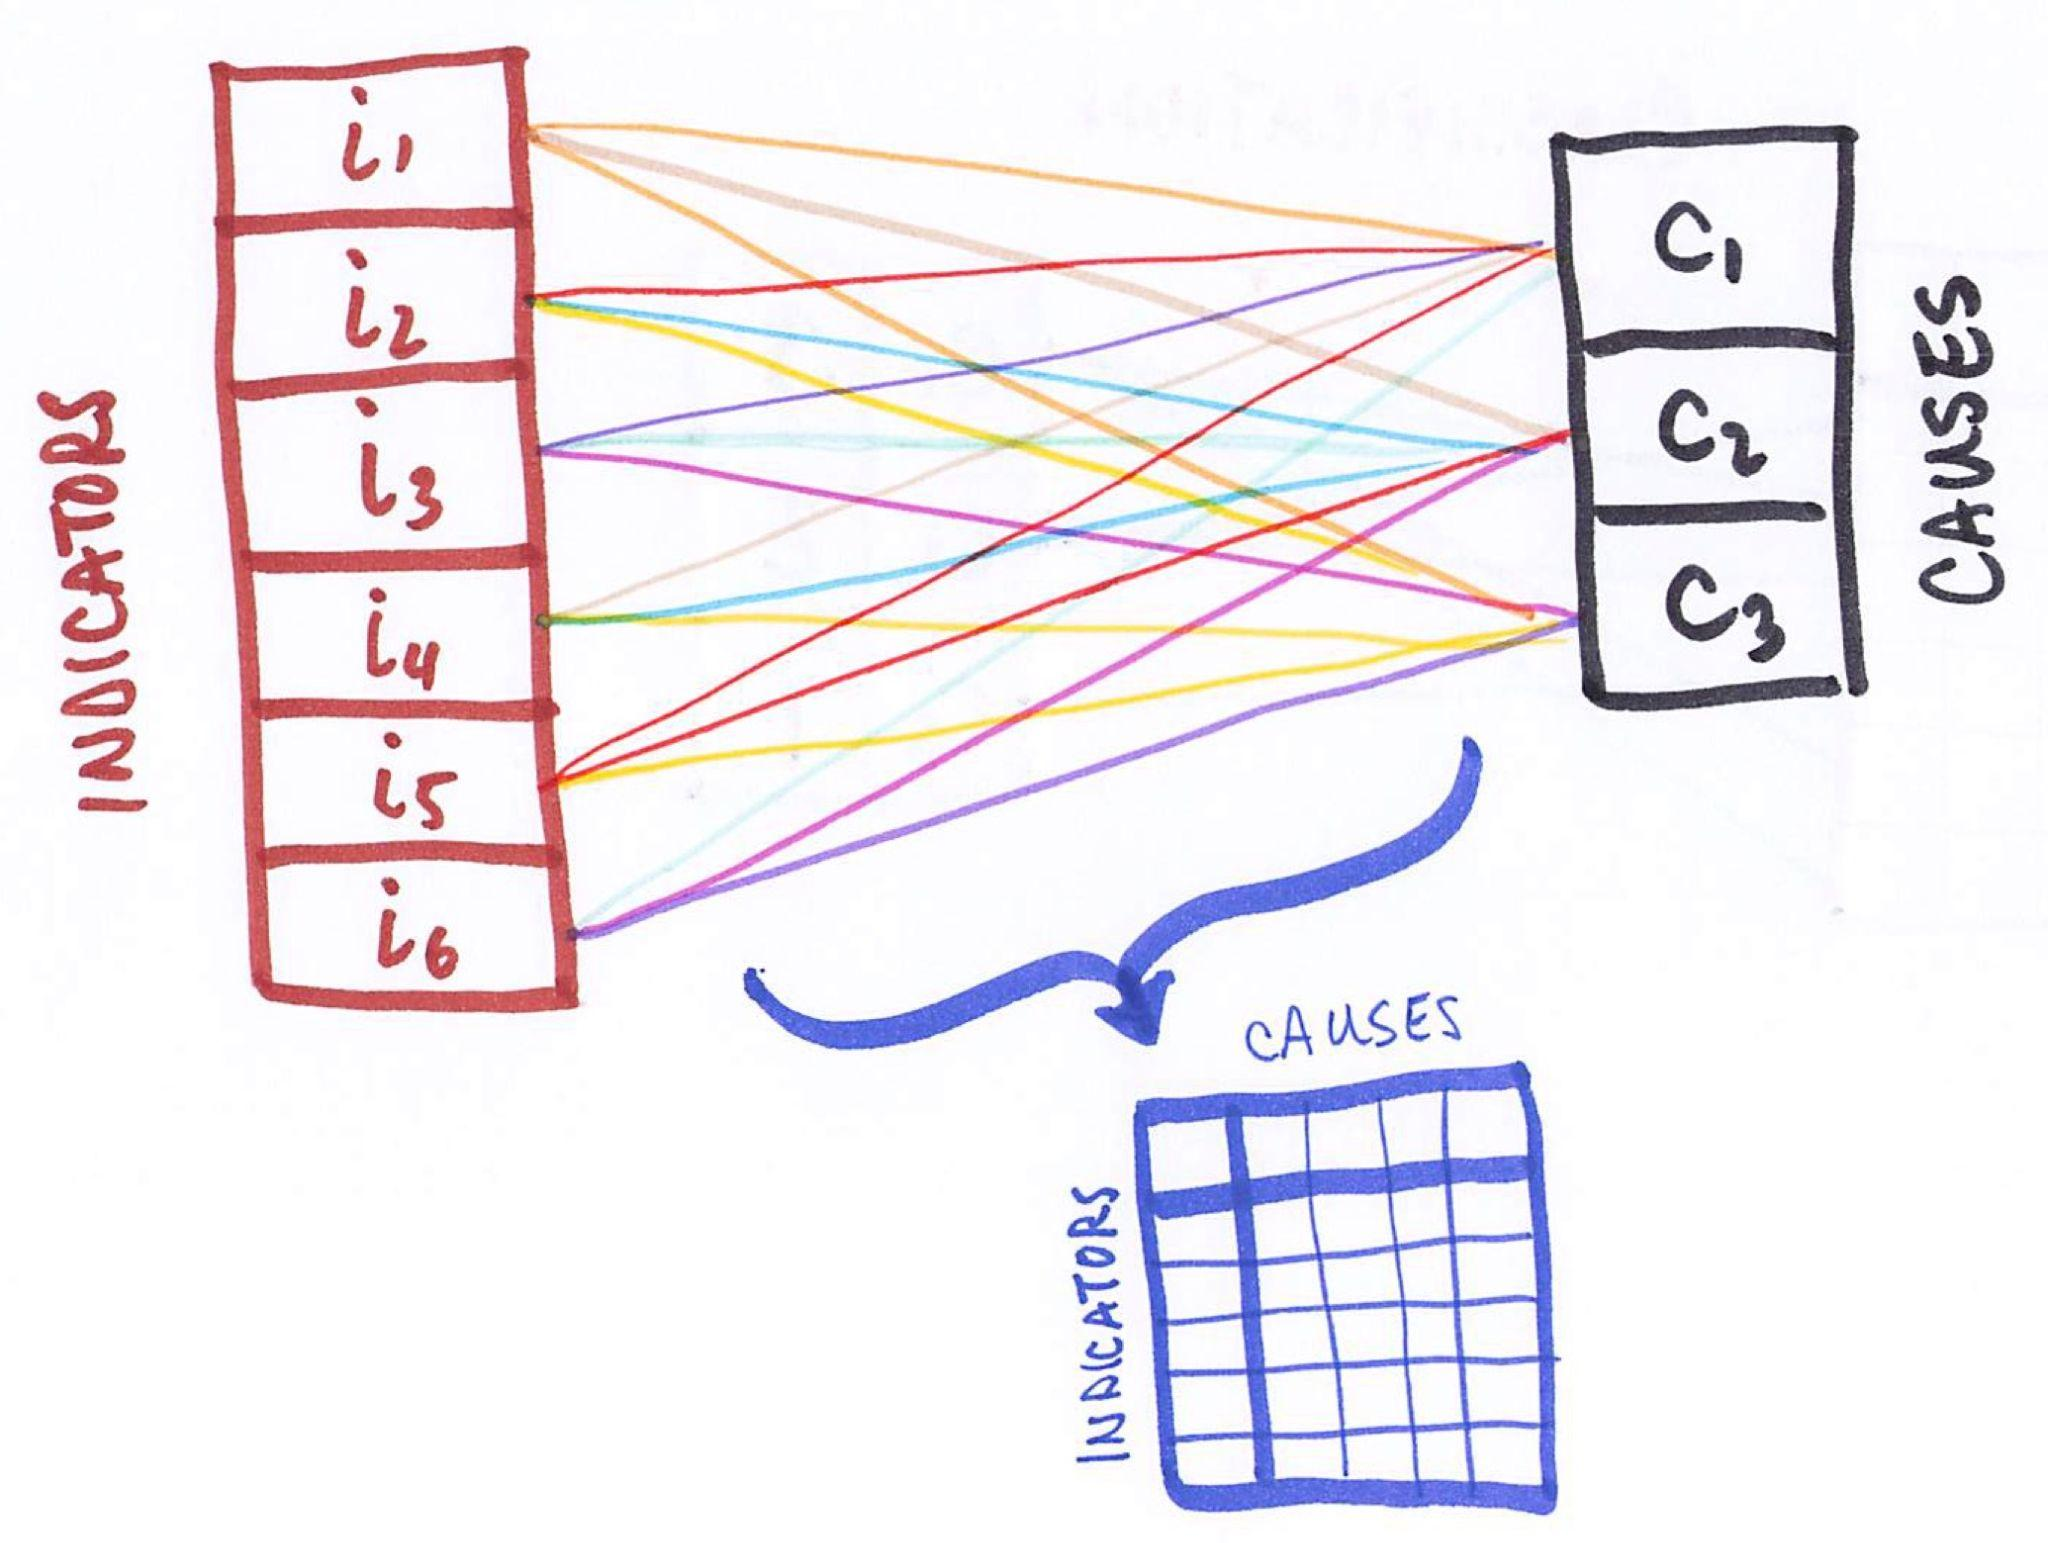 INDICATORS
i1
i2
i3
i4
i5
i6
C1
C2
C3
CAUSES
CAUSES
INDICATORS